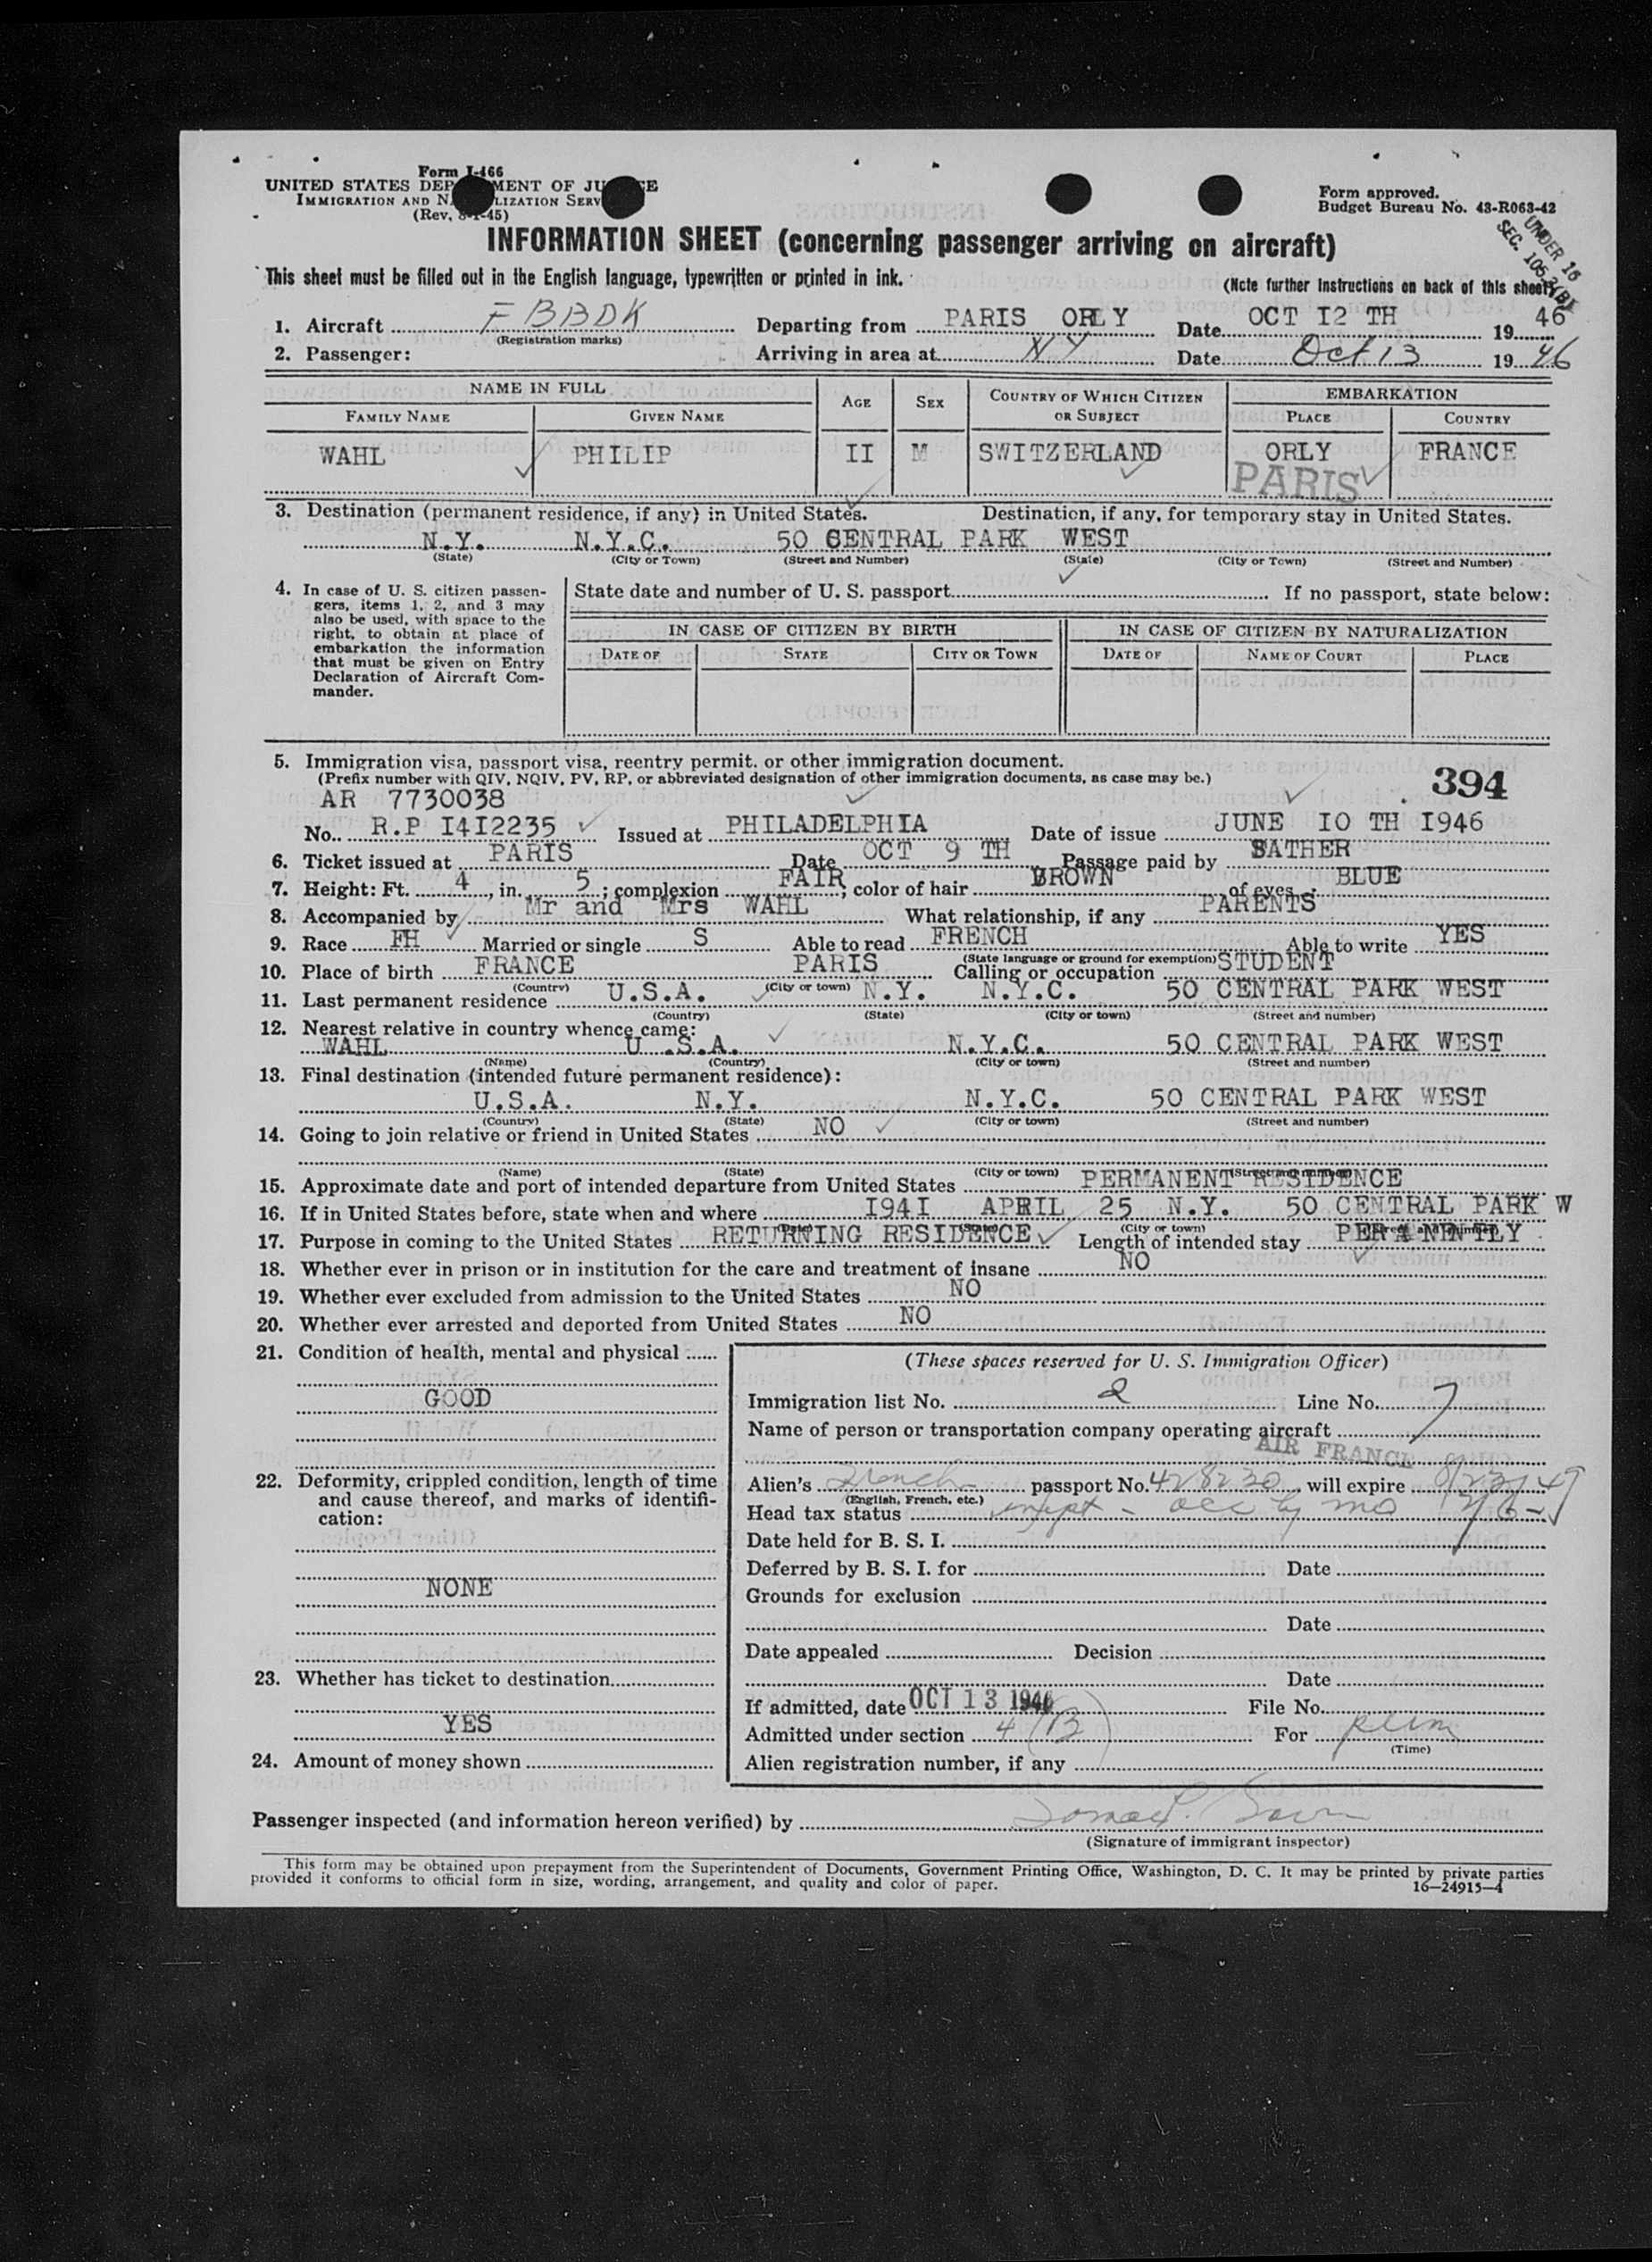 Form I-466
UNITED STATES DEP MENT OF JU E
IMMIGRATION AND N LIZATION SERV
(Rev. 8-1-45)
Form approved.
Budget Bureau No. 43-R063-42
UNDER 16
SEC. 105.3(B)
INFORMATION SHEET (concerning passenger arriving on aircraft)
This sheet must be filled out in the English language, typewritten or printed in ink.
(Note further instructions on back of this sheet)
1. Aircraft F BBDK Departing from PARIS ORLY Date OCT I2 TH 19 46
(Registration marks)
2. Passenger: Arriving in area at NY Date Oct 13 19 46
NAME IN FULL AGE SEX COUNTRY OF WHICH CITIZEN OR SUBJECT EMBARKATION
FAMILY NAME GIVEN NAME PLACE COUNTRY
WAHL PHILIP II M SWITZERLAND ORLY FRANCE
PARIS
3. Destination (permanent residence, if any) in United States. Destination, if any, for temporary stay in United States.
N.Y. N.Y.C. 50 CENTRAL PARK WEST
(State) (City or Town) (Street and Number) (State) (City or Town) (Street and Number)
4. In case of U. S. citizen passen-
gers, items 1, 2, and 3 may
also be used, with space to the
right, to obtain at place of
embarkation the information
that must be given on Entry
Declaration of Aircraft Com-
mander.
State date and number of U. S. passport If no passport, state below:
IN CASE OF CITIZEN BY BIRTH IN CASE OF CITIZEN BY NATURALIZATION
DATE OF STATE CITY OR TOWN DATE OF NAME OF COURT PLACE
5. Immigration visa, passport visa, reentry permit, or other immigration document.
(Prefix number with QIV, NQIV, PV, RP, or abbreviated designation of other immigration documents, as case may be.)
394
AR 7730038
No. R.P I4I2235 Issued at PHILADELPHIA Date of issue JUNE IO TH I946
6. Ticket issued at PARIS Date OCT 9 TH Passage paid by FATHER
7. Height: Ft. 4, in. 5; complexion FAIR; color of hair BROWN of eyes BLUE
8. Accompanied by Mr and Mrs WAHL What relationship, if any PARENTS
9. Race FH Married or single S Able to read FRENCH Able to write YES
(State language or ground for exemption)
10. Place of birth FRANCE PARIS Calling or occupation STUDENT
(Country) (City or town)
11. Last permanent residence U.S.A. N.Y. N.Y.C. 50 CENTRAL PARK WEST
(Country) (State) (City or town) (Street and number)
12. Nearest relative in country whence came:
WAHL U .S.A. N.Y.C. 50 CENTRAL PARK WEST
(Name) (Country) (City or town) (Street and number)
13. Final destination (intended future permanent residence):
U.S.A. N.Y. N.Y.C. 50 CENTRAL PARK WEST
(Country) (State) (City or town) (Street and number)
14. Going to join relative or friend in United States NO
(Name) (State) (City or town) (Street and number)
15. Approximate date and port of intended departure from United States PERMANENT RESIDENCE
16. If in United States before, state when and where I94I APRIL 25 N.Y. 50 CENTRAL PARK W
(Date) (State) (City or town) (Street and number)
17. Purpose in coming to the United States RETURNING RESIDENCE Length of intended stay PERMANENTLY
18. Whether ever in prison or in institution for the care and treatment of insane NO
19. Whether ever excluded from admission to the United States NO
20. Whether ever arrested and deported from United States NO
21. Condition of health, mental and physical
GOOD
22. Deformity, crippled condition, length of time
and cause thereof, and marks of identifi-
cation:
NONE
23. Whether has ticket to destination
YES
24. Amount of money shown
(These spaces reserved for U. S. Immigration Officer)
Immigration list No. 2 Line No. 7
Name of person or transportation company operating aircraft
AIR FRANCE
Alien's French passport No. 428230, will expire
(English, French, etc.)
Head tax status
Date held for B. S. I.
Deferred by B. S. I. for Date
Grounds for exclusion
Date
Date appealed Decision
Date
If admitted, date OCT 13 1946 File No.
Admitted under section 4 (B) For perm
(Time)
Alien registration number, if any
Passenger inspected (and information hereon verified) by
(Signature of immigrant inspector)
This form may be obtained upon prepayment from the Superintendent of Documents, Government Printing Office, Washington, D. C. It may be printed by private parties
provided it conforms to official form in size, wording, arrangement, and quality and color of paper.
16—24915-4